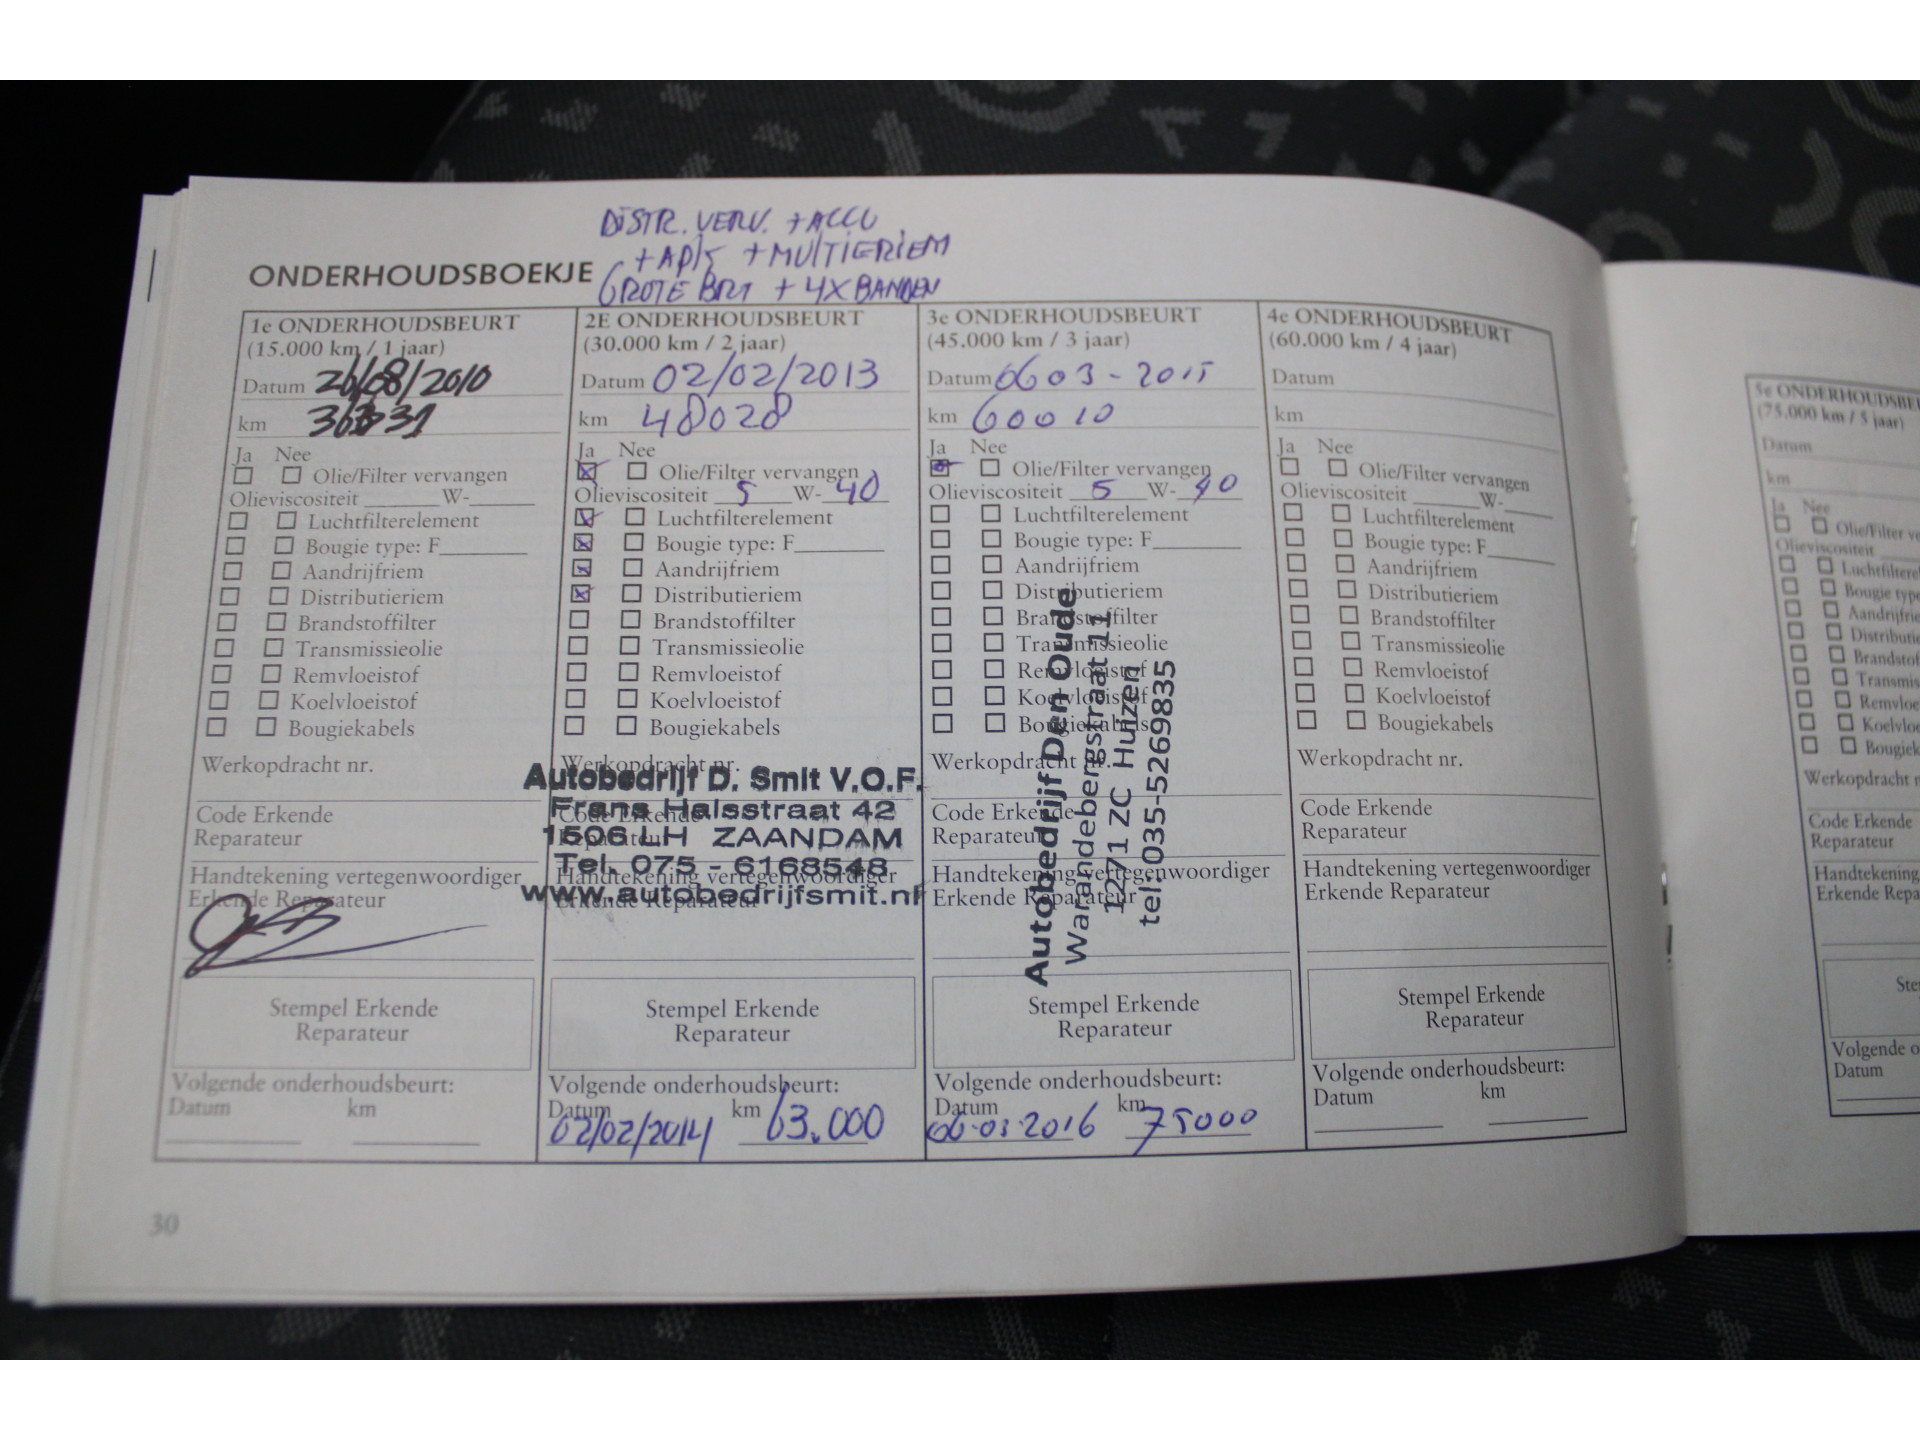 DISTR. VERV. + ACCU
+ APK + MULTIERIEM
GROTE BRT + 4X BANDEN
ONDERHOUDSBOEKJE
1e ONDERHOUDSBEURT
(15.000 km / 1 jaar)
Datum 26/08/2010
km
Ja Nee
Olie/Filter vervangen
Olieviscositeit ______W-______
Luchtfilterelement
Bougie type: F________
Aandrijfriem
Distributieriem
Brandstoffilter
Transmissieolie
Remvloeistof
Koelvloeistof
Bougiekabels
Werkopdracht nr.
Code Erkende
Reparateur
Handtekening vertegenwoordiger
Erkende Reparateur
Stempel Erkende
Reparateur
Volgende onderhoudsbeurt:
Datum km
2E ONDERHOUDSBEURT
(30.000 km / 2 jaar)
Datum 02/02/2013
km 48028
Ja Nee
Olie/Filter vervangen
Olieviscositeit 5 W- 40
Luchtfilterelement
Bougie type: F________
Aandrijfriem
Distributieriem
Brandstoffilter
Transmissieolie
Remvloeistof
Koelvloeistof
Bougiekabels
Werkopdracht nr.
Autobedrijf D. Smit V.O.F.
Frans Halsstraat 42
1506 LH ZAANDAM
Tel. 075 - 6168548
www.autobedrijfsmit.nl
Code Erkende
Reparateur
Handtekening vertegenwoordiger
Erkende Reparateur
Stempel Erkende
Reparateur
Volgende onderhoudsbeurt:
Datum km
02/02/2014 63.000
3e ONDERHOUDSBEURT
(45.000 km / 3 jaar)
Datum 06 03 - 2015
km 60010
Ja Nee
Olie/Filter vervangen
Olieviscositeit 5 W- 40
Luchtfilterelement
Bougie type: F________
Aandrijfriem
Distributieriem
Brandstoffilter
Transmissieolie
Remvloeistof
Koelvloeistof
Bougiekabels
Werkopdracht nr.
Code Erkende
Reparateur
Handtekening vertegenwoordiger
Erkende Reparateur
Autobedrijf Den Oude
Warandebergstraat 11
1271 ZC Huizen
tel: 035-5269835
Stempel Erkende
Reparateur
Volgende onderhoudsbeurt:
Datum km
06-03-2016 75000
4e ONDERHOUDSBEURT
(60.000 km / 4 jaar)
Datum
km
Ja Nee
Olie/Filter vervangen
Olieviscositeit ______W-______
Luchtfilterelement
Bougie type: F________
Aandrijfriem
Distributieriem
Brandstoffilter
Transmissieolie
Remvloeistof
Koelvloeistof
Bougiekabels
Werkopdracht nr.
Code Erkende
Reparateur
Handtekening vertegenwoordiger
Erkende Reparateur
Stempel Erkende
Reparateur
Volgende onderhoudsbeurt:
Datum km
30
5e ONDERHOUDSBEU
(75.000 km / 5 jaar)
Datum
km
Ja Nee
Olie/Filter ve
Olieviscositeit
Luchtfilterel
Bougie type
Aandrijfrie
Distributie
Brandstof
Transmis
Remvloe
Koelvloe
Bougiek
Werkopdracht n
Code Erkende
Reparateur
Handtekening
Erkende Repa
Ste
Volgende o
Datum